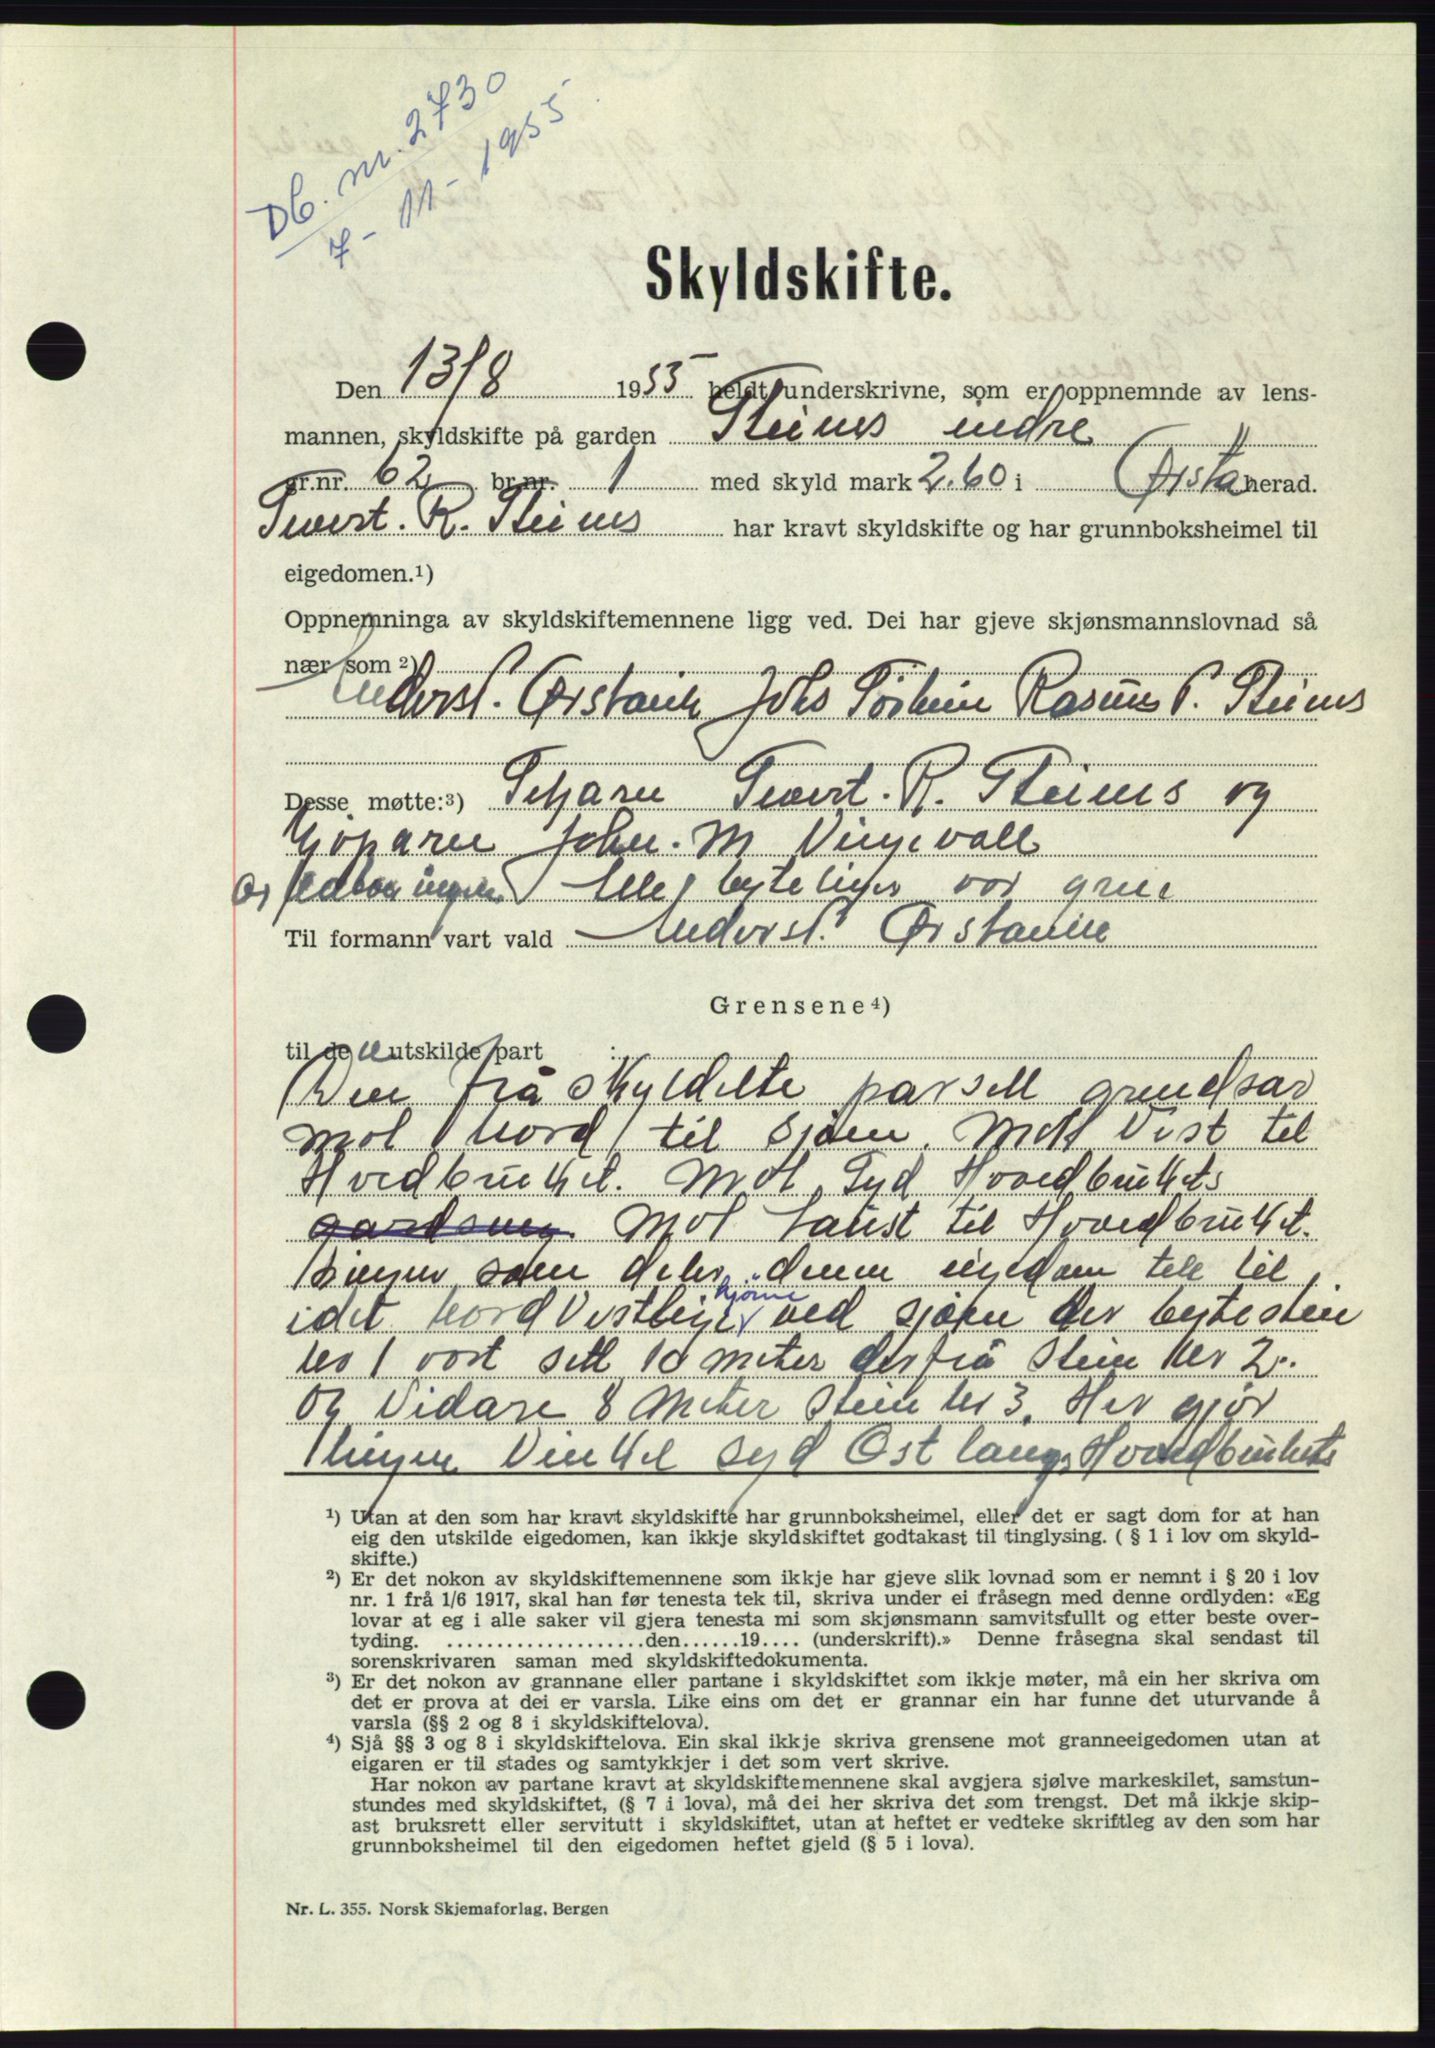 Db. nr. 2730
7-11-1955
Skyldskifte.
Den 13/8 1955 heldt underskrivne, som er oppnemnde av lens-
mannen, skyldskifte på garden Steines indre
gr.nr. 62 br.nr. 1 med skyld mark 2.60 i Ørsta herad.
Sivert. R. Steines har kravt skyldskifte og har grunnboksheimel til
eigedomen.¹)
Oppnemninga av skyldskiftemennene ligg ved. Dei har gjeve skjønsmannslovnad så
nær som ²)
Anders Ørstavik Johs Rasmus P. Steines
Desse møtte:³) Seljaren Sivert. R. Steines og
Kjøparen John. M Vingevoll
Til formann vart vald Anders Ørstavik
Grensene⁴)
til de utskilde part :
Den frå skyldelte parsell grendsar
mot Nord til Sjøen. Mot Vest til
Hovedbruket. Mot Syd Hovedbrukets
Mot Aust til Hovedbruket.
som deler denne eigedom tek til
i det Nord Vestlige hjørne ved sjøen der bytestein
nr 1 vart sett 10 meter derfrå stein nr 2.
og Vidare 8 meter stein nr 3. Her gjør
linjen Vinkel syd Ost langs Hovedbrukets
¹) Utan at den som har kravt skyldskifte har grunnboksheimel, eller det er sagt dom for at han
eig den utskilde eigedomen, kan ikkje skyldskiftet godtakast til tinglysing. ( § 1 i lov om skyld-
skifte.)
²) Er det nokon av skyldskiftemennene som ikkje har gjeve slik lovnad som er nemnt i § 20 i lov
nr. 1 frå 1/6 1917, skal han før tenesta tek til, skriva under ei fråsegn med denne ordlyden: «Eg
lovar at eg i alle saker vil gjera tenesta mi som skjønsmann samvitsfullt og etter beste over-
tyding. ....................den......19.... (underskrift).» Denne fråsegna skal sendast til
sorenskrivaren saman med skyldskiftedokumenta.
³) Er det nokon av grannane eller partane i skyldskiftet som ikkje møter, må ein her skriva om
det er prova at dei er varsla. Like eins om det er grannar ein har funne det uturvande å
varsla (§§ 2 og 8 i skyldskiftelova).
⁴) Sjå §§ 3 og 8 i skyldskiftelova. Ein skal ikkje skriva grensene mot granneeigedomen utan at
eigaren er til stades og samtykkjer i det som vert skrive.
Har nokon av partane kravt at skyldskiftemennene skal avgjera sjølve markeskilet, samstun-
stundes med skyldskiftet, (§ 7 i lova), må dei her skriva det som trengst. Det må ikkje skip-
ast bruksrett eller servitutt i skyldskiftet, utan at heftet er vedteke skriftleg av den som har
grunnboksheimel til den eigedomen heftet gjeld (§ 5 i lova).
Nr. L. 355. Norsk Skjemaforlag, Bergen